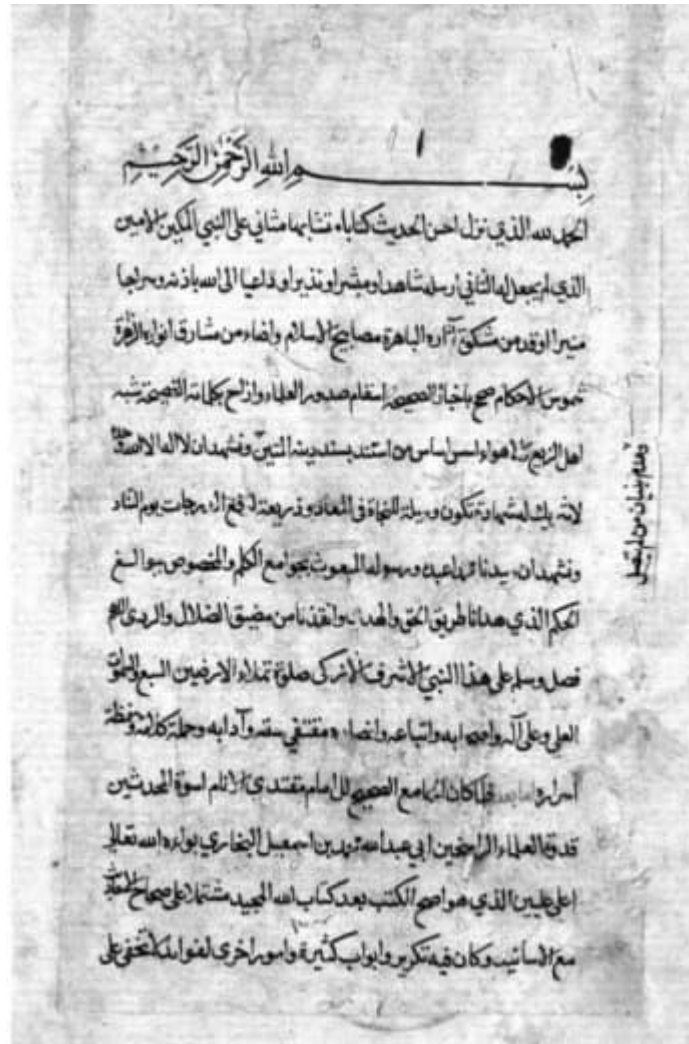 بسم الله الرحمن الرحيم
الحمد لله الذي نزل احسن الحديث كتابا متشابها مثاني على النبي المكين الامين
الذي لم يجعل له الثاني ارسله شاهدا ومبشرا ونذيرا وداعيا الى الله باذنه وسراجا
منيرا اوقد من مشكوة آثاره الباهرة مصابيح الاسلام واضاء من مشارق انواره الزاهرة
شموس الاحكام صحح باخباره الصحيحة اسقام صدور العلماء وازاح بكلماته الفصيحة شبه
اهل الزيغ والاهواء اسس اساس من استند بسند دينه المتين ونشهد ان لا اله الا الله وحده
لا شريك له شهادة تكون وسيلة للنجاة في المعاد وذريعة لرفع الدرجات يوم التناد
ونشهد ان سيدنا محمدا عبده ورسوله المبعوث بجوامع الكلم والمخصوص ببوالغ
الحكم الذي هدانا طريق الحق والهدى وانقذنا من مضيق الضلال والردى اللهم
فصل وسلم على هذا النبي الاشرف الازكى صلوة تملاء الارضين السبع والسموات
العلى وعلى آله واصحابه واتباعه وانصاره مقتفي سنته وآدابه وحملة كلامه وحفظة
اسراره اما بعد فلما كان الجامع الصحيح للامام مقتدى الانام اسوة المحدثين
قدوة العلماء الراسخين ابي عبد الله محمد بن اسمعيل البخاري بواءه الله تعالى
اعلى عليين الذي هو اصح الكتب بعد كتاب الله المجيد مشتملا على صحاح الاحاديث
مع الاسانيد وكان فيه تكرير وابواب كثيرة وامور اخرى لفوائد لا تخفى على
وهدم بنيان من